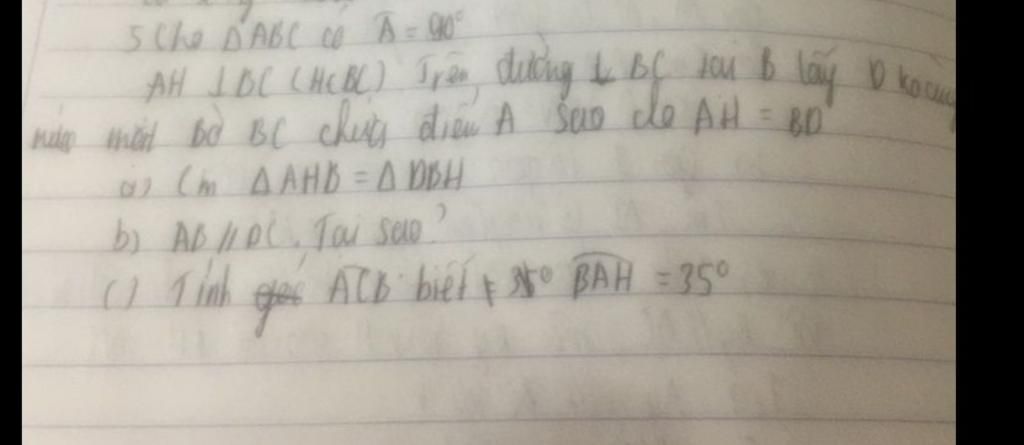 5 Cho ΔABC có Â = 90°
AH ⊥ BC (H∈BC) Trên đường ⊥ BC tại B lấy D ko cùng
nửa mặt bờ BC chứa điểm A sao cho AH = BD
a) Cm ΔAHB = ΔDBH
b) AB // DC. Tại sao?
c) Tính ACB biết BAH = 35°